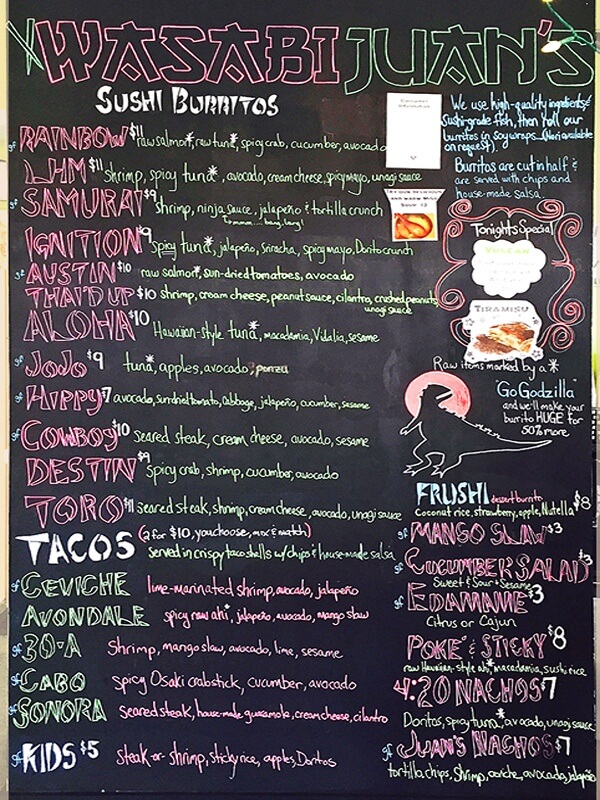 WASABI JUAN'S
SUSHI BURRITOS
gf RAINBOW $11 raw salmon*, raw tuna*, spicy crab, cucumber, avocado
LHM $11 shrimp, spicy tuna*, avocado, cream cheese, spicy mayo, unagi sauce
gf SAMURAI $9 shrimp, ninja sauce, jalapeño & tortilla crunch
IGNITION $9 spicy tuna*, jalapeño, sriracha, spicy mayo, Dorito crunch
gf AUSTIN $10 raw salmon*, sun-dried tomatoes, avocado
THAI'D UP $10 shrimp, cream cheese, peanut sauce, cilantro, crushed peanuts,
unagi sauce
ALOHA $10 Hawaiian-style tuna*, macadamia, Vidalia, sesame
gf JOJO $9 tuna*, apples, avocado, ponzu
gf HIPPY $7 avocado, sundried tomato, cabbage, jalapeño, cucumber, sesame
gf COWBOY $10 seared steak, cream cheese, avocado, sesame
DESTIN $9 spicy crab, shrimp, cucumber, avocado
TORO $11 seared steak, shrimp, cream cheese, avocado, unagi sauce
TACOS (2 for $10, you choose, mix & match)
served in crispy taco shells w/ chips & house-made salsa
gf CEVICHE lime-marinated shrimp, avocado, jalapeño
AVONDALE spicy raw ahi*, jalapeño, avocado, mango slaw
gf 30-A Shrimp, mango slaw, avocado, lime, sesame
gf CABO spicy Osaki crabstick, cucumber, avocado
gf SONORA seared steak, house-made guacamole, cream cheese, cilantro
gf KIDS $5 steak or shrimp, sticky rice, apples, Doritos
We use high-quality ingredients &
sushi-grade fish, then roll our
burritos in soy wraps. (Nori available
on request).
Burritos are cut in half &
are served with chips and
house-made salsa.
Tonights Special
TIRAMISU
Raw items marked by a *
"Go Godzilla"
and we'll make your
burrito HUGE for
50% more
FRUSHI dessert burrito $8
Coconut rice, strawberry, apple, Nutella
gf MANGO SLAW $3
gf CUCUMBER SALAD $3
Sweet & Sour & Sesame
gf EDAMAME $3
Citrus or Cajun
POKE & STICKY $8
raw Hawaiian-style ahi*, macadamia, sushi rice
4:20 NACHOS $7
Doritos, spicy tuna*, avocado, unagi sauce
gf JUAN'S NACHOS $7
tortilla chips, shrimp, ceviche, avocado, jalapeño